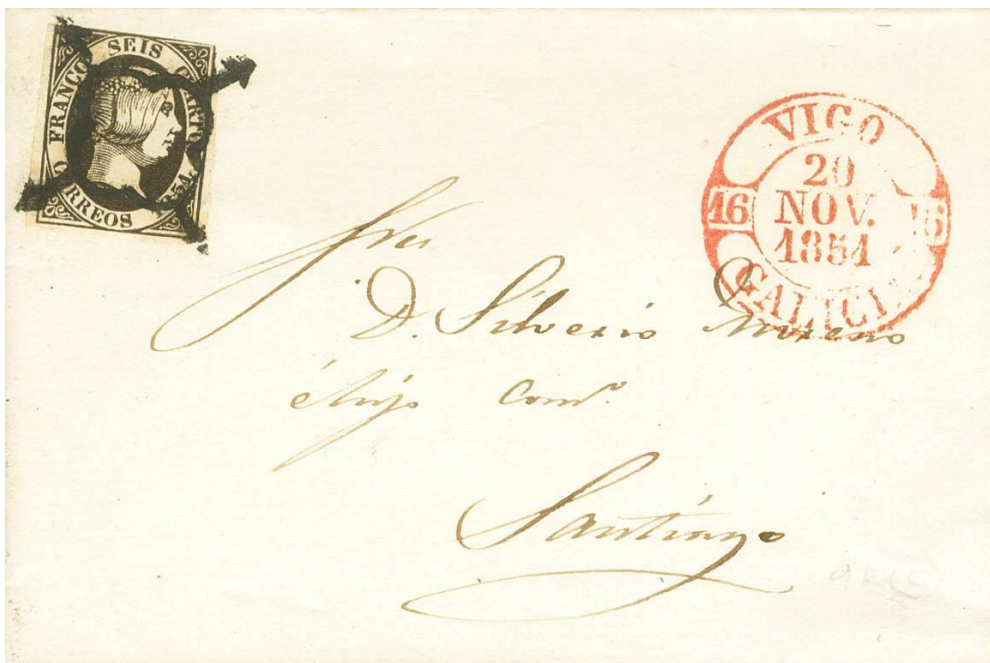 FRANCO. SEIS CUARTOS 1851
CORREOS
VIGO
20
NOV.
1851
16 16
GALICIA
Sres
D. Silverio Moreno
é hijo Comº
Santiago